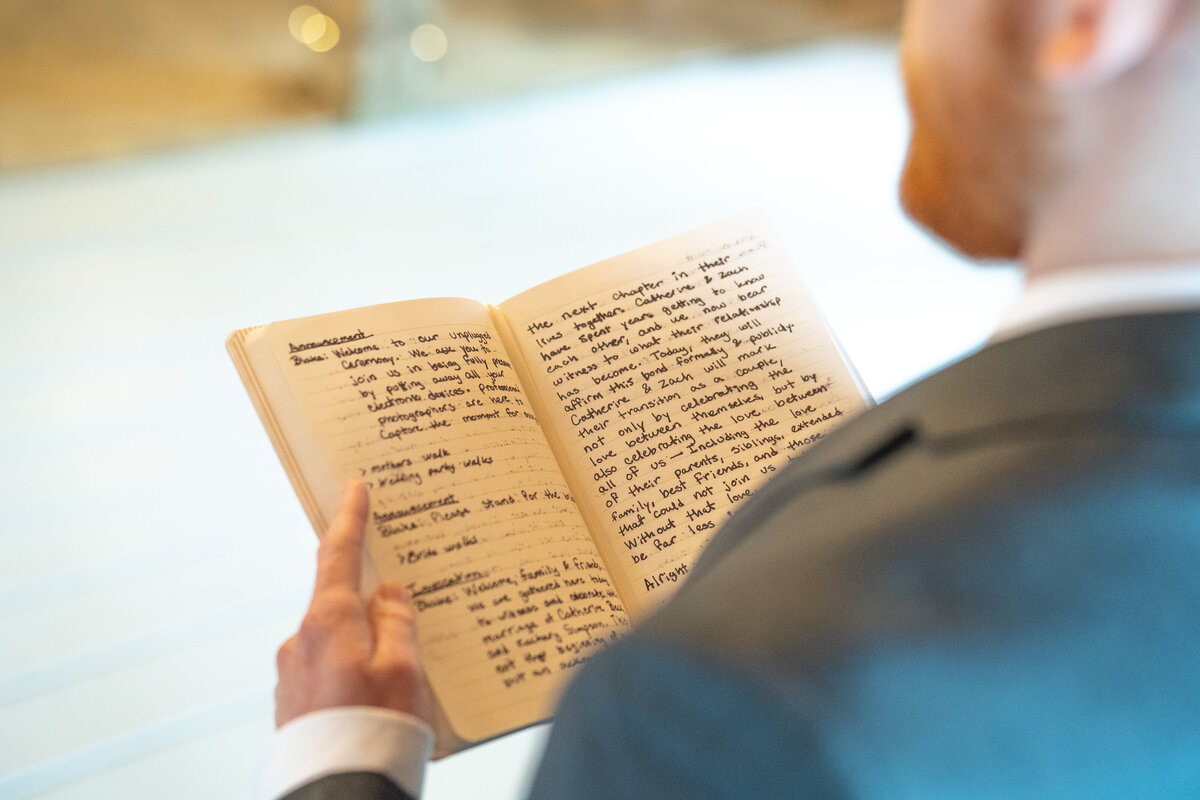 Announcement
Blake: Welcome to our unplugged
Ceremony. We ask you to
join us in being fully
by putting away all your
electronic devices. Professional
photographers are here to
Capture the moment for
> mothers walk
> Wedding party walks
Announcement
Blake: Please stand for the
> Bride walks
Blake: Welcome, family & friends,
we are gathered here today
to witness and celebrate the
marriage of Catherine
and Zachary Simpson. This
not the beginning of
but an
the next chapter in their
lives together. Catherine & Zach
have spent years getting to know
each other, and we now bear
witness to what their relationship
has become. Today, they will
affirm this bond formally & publicly.
Catherine & Zach will mark
their transition as a couple,
not only by celebrating the
love between themselves, but by
also celebrating the love between
all of us - Including the love
of their parents, siblings, extended
family, best friends, and those
that could not join us
Without that love,
be far less
Alright